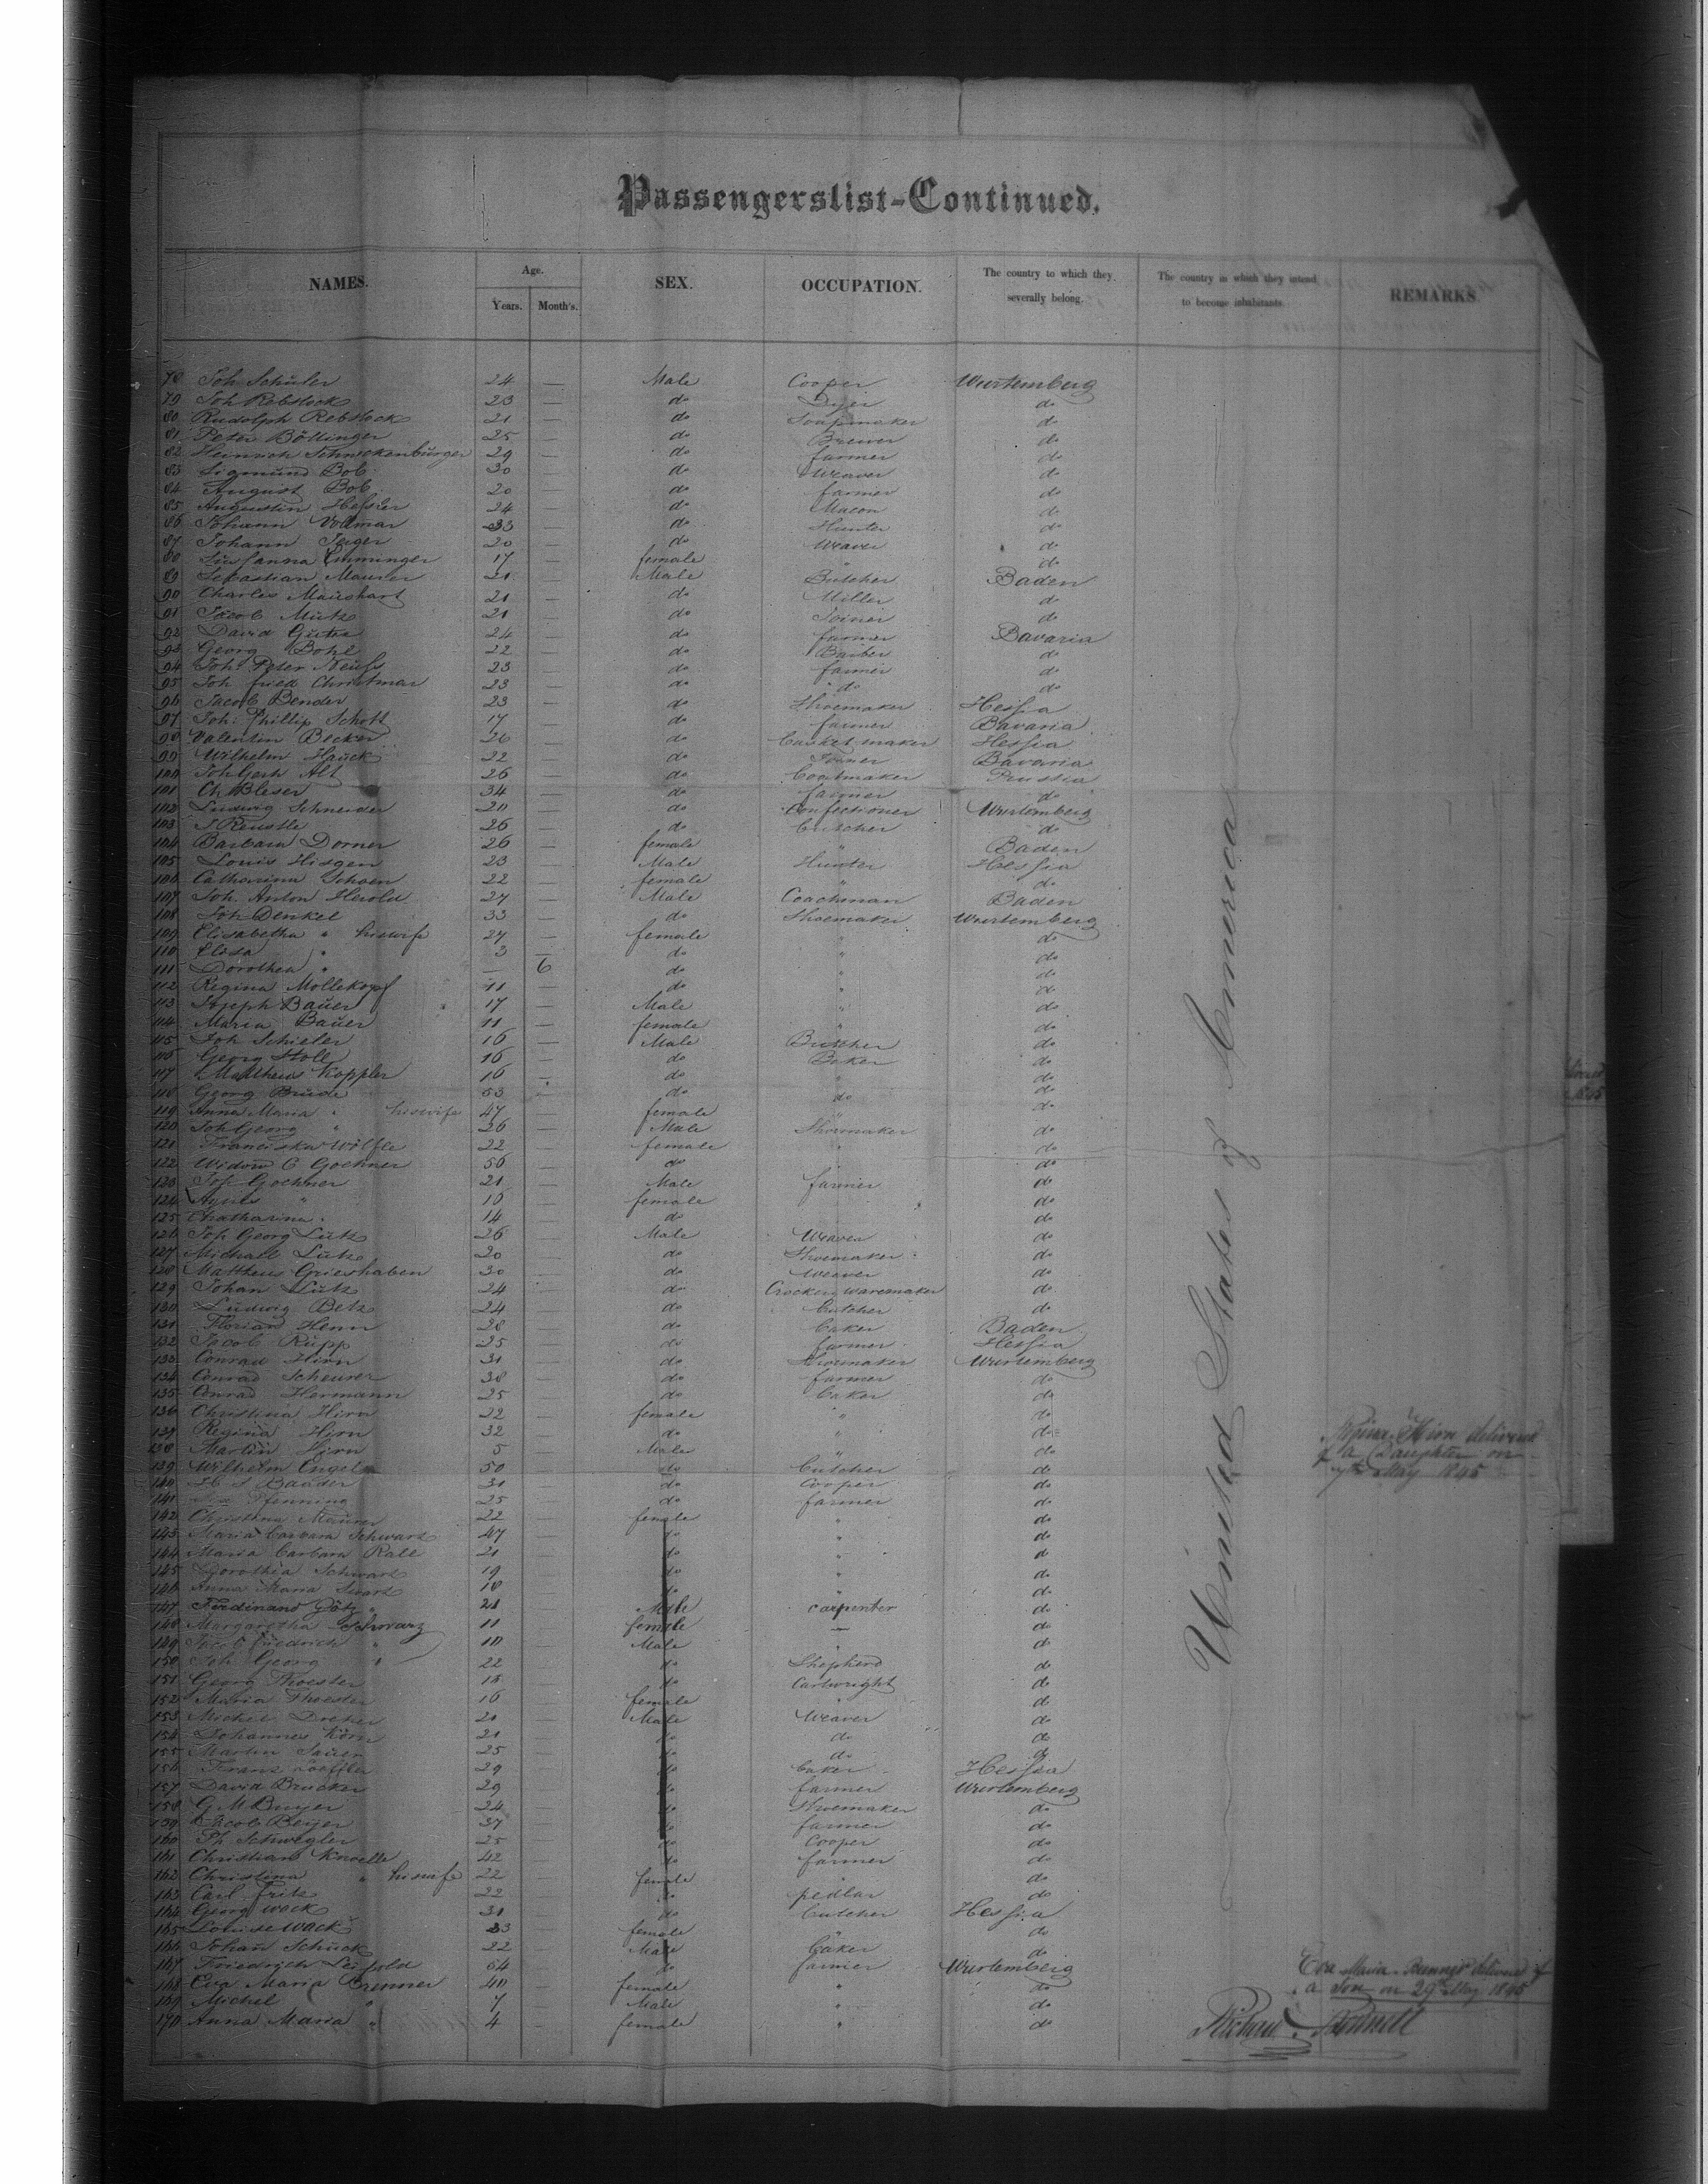 Passengerslist-Continued.
NAMES. Age. SEX. OCCUPATION. The country to which they severally belong. The country in which they intend to become inhabitants. REMARKS
Years. Month's.
78 Joh Schüler 24 — Male Cooper Wurtemberg
79 Joh Rebstock 23 — do Dyer do
80 Rudolph Rebstock 21 — do Soapmaker do
81 Peter Böllinger 25 — do Brewer do
82 Heinrich Schneckenburger 29 — do farmer do
83 Sigmund Bob 30 — do Weaver do
84 August Bob 20 — do farmer do
85 Augustin Hessler 24 — do Mason do
86 Johann Vollmar 33 — do Hunter do
87 Johann Jager 20 — do Weaver do
88 Susanna Emminger 17 — female " do
89 Sebastian Maurer 21 — Male Butcher Baden
90 Charles Maushart 21 — do Miller do
91 Jacob Mutz 21 — do Joiner do
92 David Guthe 24 — do farmer Bavaria
93 Georg Bohl 22 — do Barber do
94 Joh Peter Neuss 23 — do farmer do
95 Joh fried Christman 23 — do do do
96 Jacob Bender 23 — do Shoemaker Hessia
97 Joh. Phillip Schott 17 — do farmer Bavaria
98 Valentin Becker 26 — do Basket maker Hessia
99 Wilhelm Hauck 22 — do Joiner Bavaria
100 Joh Gerh Alt 26 — do Coatmaker Prussia
101 Ch Bleser 34 — do farmer do
102 Ludwig Schneider 20 — do Confectioner Wurtemberg
103 J Reustle 26 — do butcher do
104 Barbara Dorner 26 — female " Baden
105 Louis Hisgen 23 — Male Hunter Hessia
106 Catharina Schoen 22 — female " do
107 Joh. Anton Herold 27 — Male Coachman Baden
108 Joh Denkel 33 — do Shoemaker Wurtemberg
109 Elisabetha " his wife 27 — female " do
110 Elisa " 3 — do " do
111 Dorothea " — 6 do " do
112 Regina Mollekopf 11 — do " do
113 Joseph Bauer 17 — Male " do
114 Maria Bauer 11 — female " do
115 Joh Schieler 16 — Male Butcher do
116 Georg Stoll 16 — do Baker do
117 Mattheus Koppler 16 — do " do
118 Georg Brude 53 — do do do
119 Anna Maria " his wife 47 — female " do
120 Joh Georg " 26 — Male Shoemaker do
121 Franciska Wölfle 22 — female " do
122 Widow C Gochner 56 — do do
123 Joh Gochner 21 — Male farmer do
124 Agnes " 16 — female do
125 Chatharina " 14 — do do
126 Joh Georg Lutz 26 — Male Weaver do
127 Michall Lutz 20 — do Shoemaker do
128 Mattheus Grieshaben 30 — do Weaver do
129 Johan Lutz 24 — do Crockery waremaker do
130 Ludwig Betz 24 — do butcher do
131 Florian Henn 28 — do baker Baden
132 Jacob Rupp 25 — do farmer Hessia
133 Conrad Hirn 31 — do Shoemaker Wurtemberg
134 Conrad Scheurer 38 — do farmer do
135 Conrad Hermann 25 — do baker do
136 Christina Hirn 22 — female " do
137 Regina Hirn 32 — do " do Regina Hirn delivered of a Daughter on May 1845
138 Martin Hirn 5 — Male " do
139 Wilhelm Engel 50 — do butcher do
140 Baader 31 — do Cooper do
141 Pfenning 25 — do farmer do
142 Christina Maurer 22 — female " do
143 Maria barbara Schwarz 47 — do " do
144 Maria barbara Rall 21 — do " do
145 Dorothia Schwarz 19 — do " do
146 Anna Maria Swarz 18 — do " do
147 Ferdinand Götz 21 — Male carpenter do
148 Margaretha Schwarz 11 — female — do
149 Jacob friedrich " 10 — Male " do
150 Joh Georg " 22 — do Shepherd do
151 Georg Thoester 18 — do Cartwright do
152 Maria Thoester 16 — female " do
153 Michel Dreher 21 — Male Weaver do
154 Johannes Körn 21 — do do do
155 Martin Sauer 25 — do do do
156 Franz Loeffler 29 — do baker Hessia
157 David Brucker 29 — do farmer Wurtemberg
158 G M Buyer 24 — do Shoemaker do
159 Jacob Beyer 37 — do farmer do
160 Ph Schwegler 25 — do Cooper do
161 Christian Knoelle 42 — do farmer do
162 Christina " his wife 22 — female " do
163 Carl fritz 22 — do pedlar do
164 Georg Wack 31 — do butcher Hessia
165 Louise Wack 23 — female do
166 Johan Schuck 22 — Male baker do
167 Friedrich Leipold 54 — do farmer Wurtemberg
168 Eva Maria Brenner 40 — female " do Eva Maria Brenner delivered of a Son on 29th May 1845
169 Michel " 7 — Male " do
170 Anna Maria " 4 — female " do
United States of America